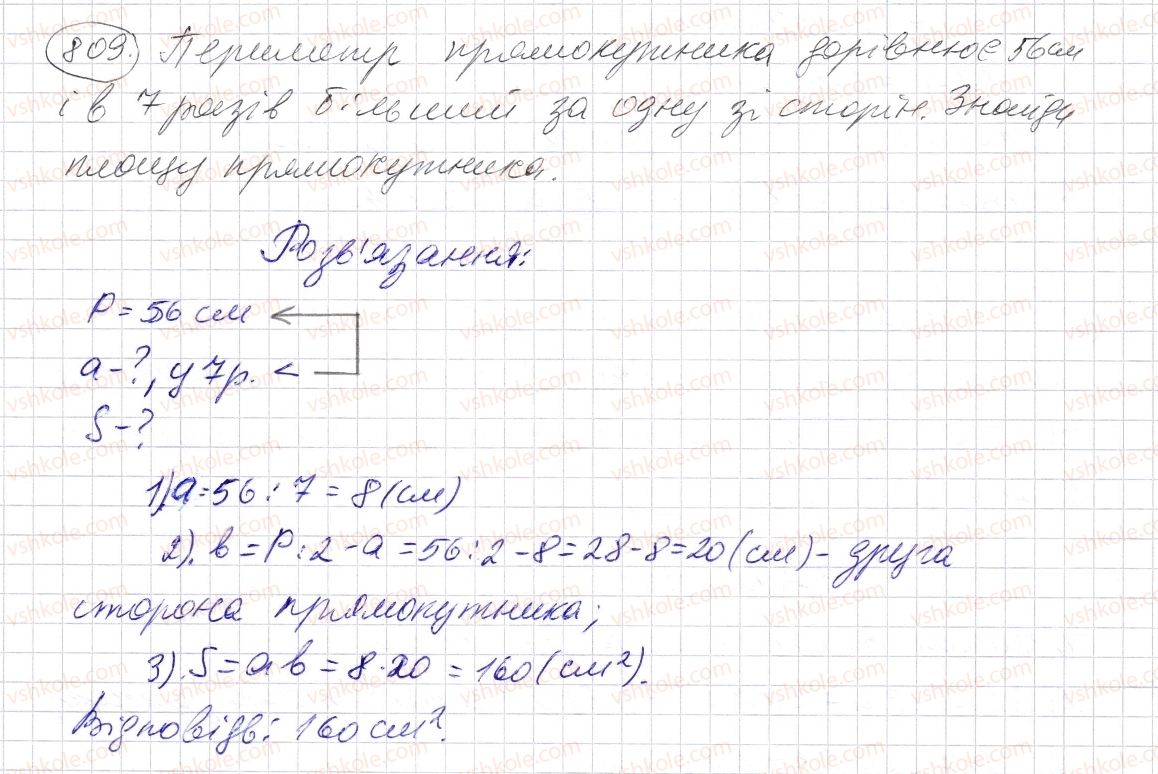 809. Периметр прямокутника дорівнює 56 см
і в 7 разів більший за одну зі сторін. Знайди
площу прямокутника.
Розв'язання:
P = 56 см
a - ?, у 7 р. <
S - ?
1) a = 56 : 7 = 8 (см)
2). b = P : 2 - a = 56 : 2 - 8 = 28 - 8 = 20 (см) - друга
сторона прямокутника;
3). S = ab = 8 · 20 = 160 (см²).
Відповідь: 160 см².